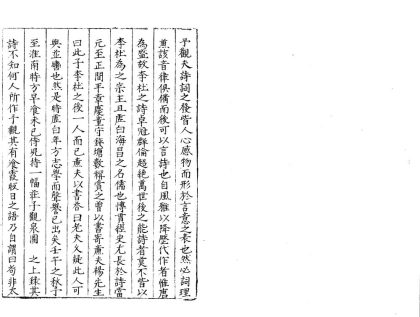 予觀夫詩詞之發皆人心感物而形於言意之表也然必詞理
兼該音律俱備而後可以言詩也自風雅以降歷代作者惟唐
為盛然李杜之詩卓冠群倫超絕萬世後之能詩者莫不皆以
李杜為之宗主且虛白海昌之名儒也博貫經史尤長於詩當
元至正間平章慶童守錢塘數稱賞之曾以書寄廉夫楊先生
曰此子李杜之後一人而已廉夫以書答曰老夫又疑此人可
與並 也然是時虛白年方志學而聲譽已出矣壬午之秋予
至淮南時方早食未已傳見持一幅莊子觀泉圖 之上錄其
詩不知何人所作予觀其有飡霞 日之語乃自謂曰苟非太